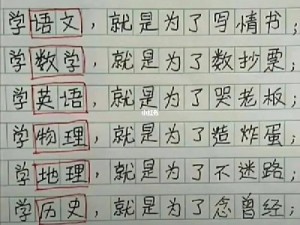 学语文，就是为了写情书；
学数学，就是为了数抄票；
学英语，就是为了哭老板；
学物理，就是为了造炸蛋；
学地理，就是为了不迷路；
学历史，就是为了念曾经；